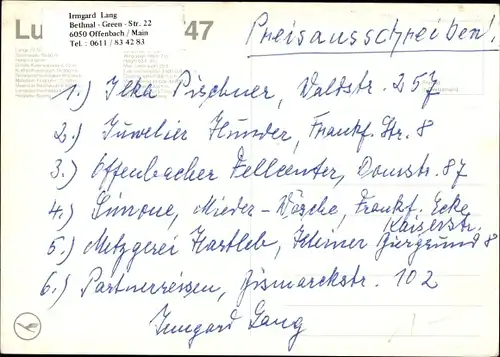 Lu 47
Irmgard Lang
Bethnal - Green - Str. 22
6050 Offenbach / Main
Tel. : 0611 / 83 42 83
Preisausschreiben!
1.) Ilka Pischner, Waldstr. 257
2.) Juwelier Hunder, Frankf. Str. 8
3.) Offenbacher Fellcenter, Domstr. 87
4.) Simone, Mieder - Wäsche, Frankf. Ecke
Kaiserstr.
5.) Metzgerei Hartleb, Kleiner Biergrund 8
6.) Partnerreisen, Bismarckstr. 102
Irmgard Lang